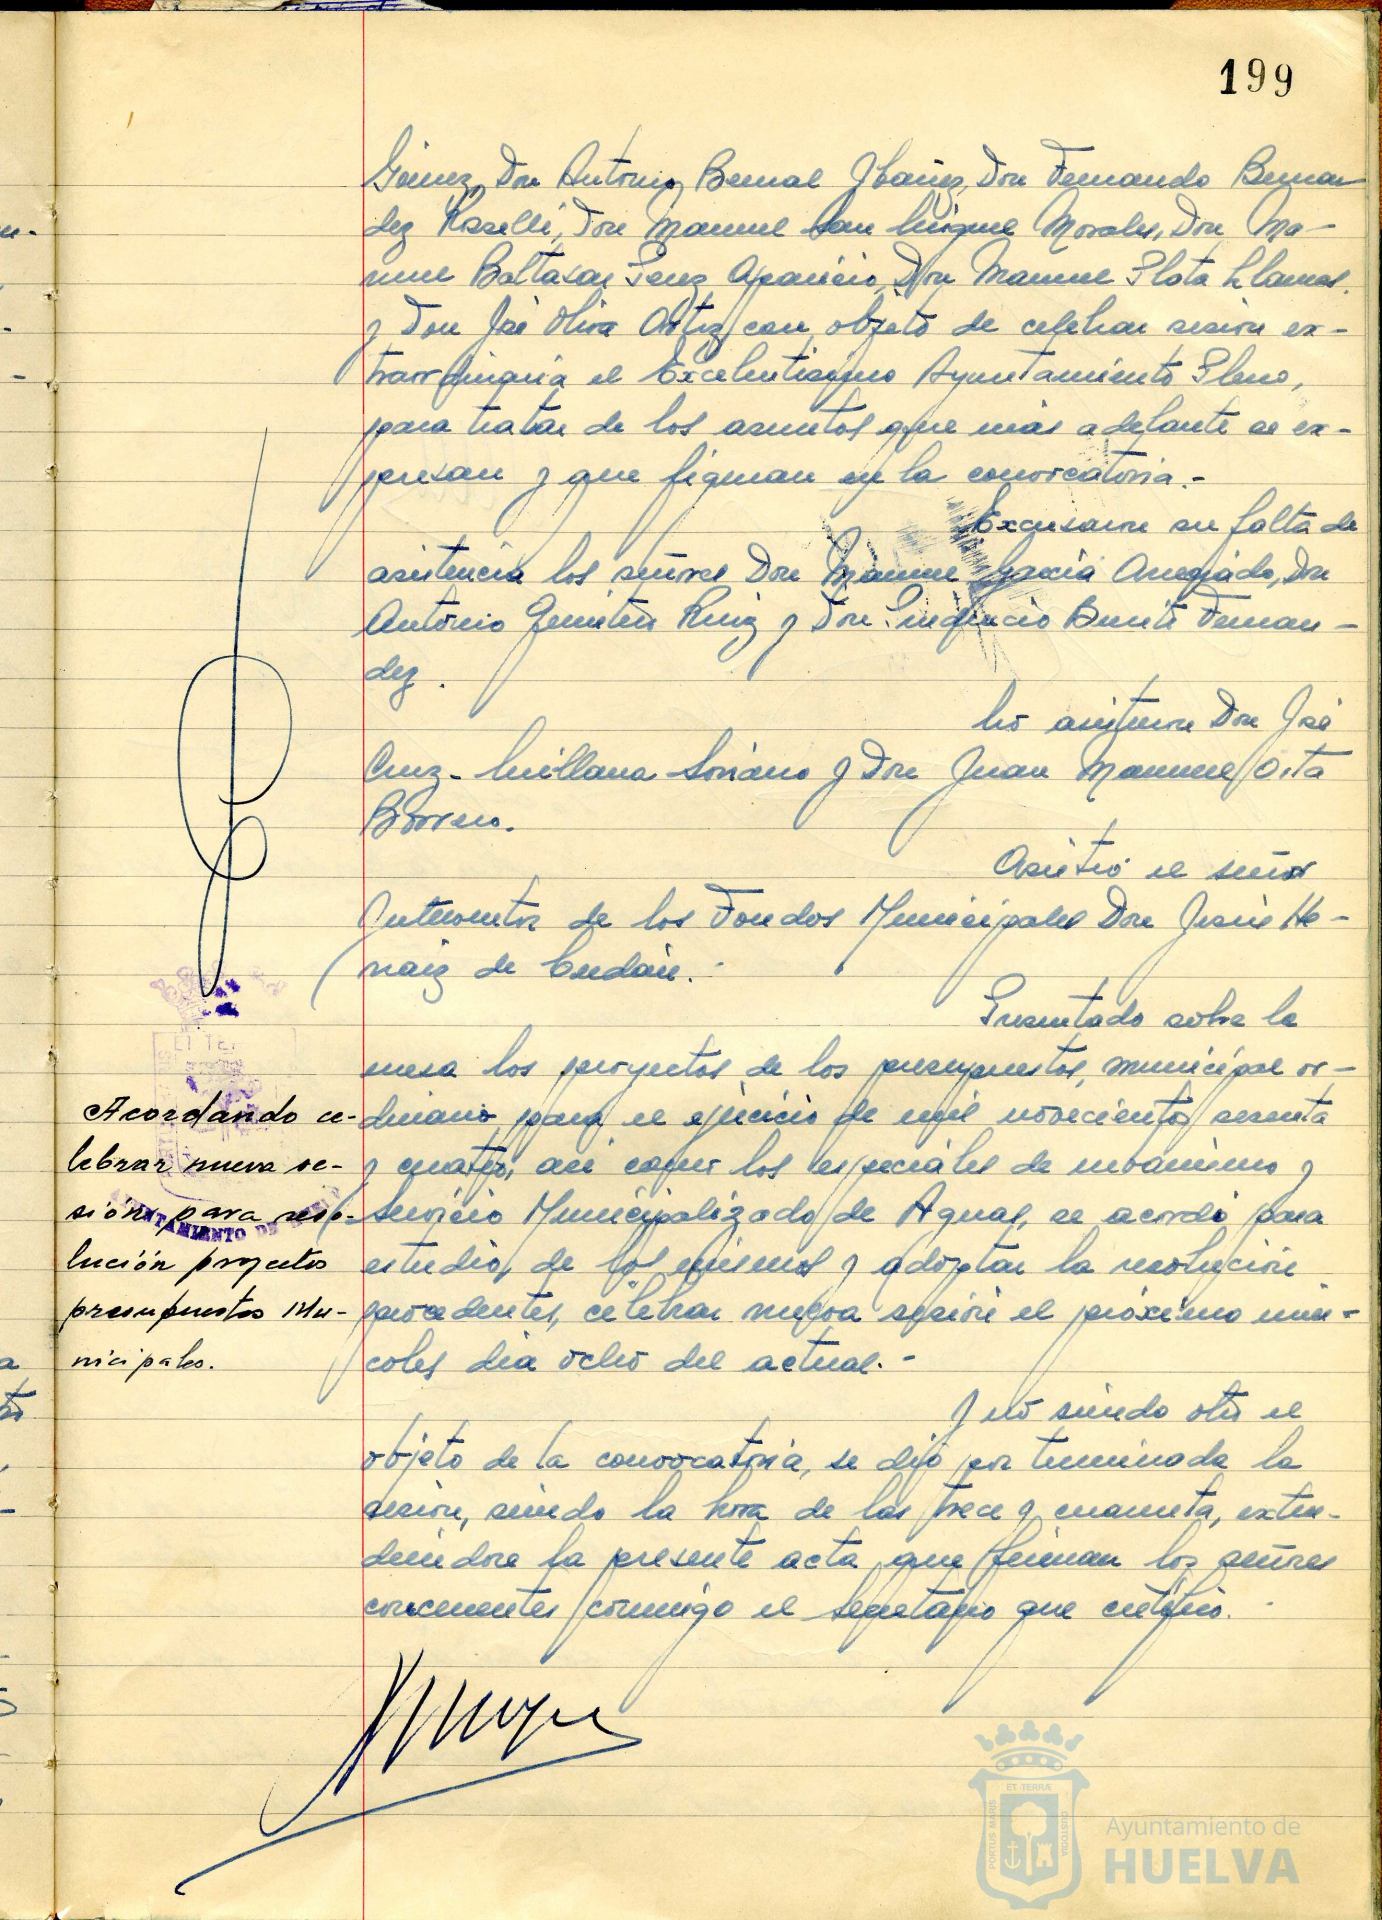 199
Gómez, Don Antonio Bernal Ibáñez, Don Fernando Bernan
dez Rosselli, Don Manuel San Miguel Morales, Don Ma-
nuel Baltasar Senz Aparicio, Don Manuel Plata Llamas.
y Don José Oliva Ortiz con objeto de celebrar sesion ex-
traordinaria el Excelentisimo Ayuntamiento Pleno,
para tratar de los asuntos que más adelante se ex-
presan y que figuran en la convocatoria.-
Excusaron su falta de
asistencia los señores Don Manuel García Don
Antonio Ruiz y Don Benito Fernan-
dez.
No asistieron Don José
Cruz-Millana Soriano y Don Juan Manuel Orta
Borrero.
Asistió el señor
Interventor de los Fondos Municipales Don Jesús He-
raiz de
Presentado sobre la
mesa los proyectos de los presupuestos, municipal or-
dinario para el ejercicio de mil novecientos sesenta
y cuatro, asi como los especiales de urbanismo y
Servicio Municipalizado de Aguas, se acordó para
estudio, de los mismos y adoptar la resolución
procedentes, celebrar nueva sesión el próximo mier-
coles dia ocho del actual.-
Y nó siendo otro el
objeto de la convocatoria, se dijo por terminada la
sesion, siendo la hora de las trece y cuarenta, exten-
diendose la presente acta que firman los señores
concurrentes conmigo el Secretario que certifico.
Acordando ce-
lebrar nueva se-
sión para reso-
lución proyectos
presupuestos Mu-
nicipales.
ET TE
AYUNTAMIENTO DE
PORTUS MARIS
ET TERRÆ
CUSTODIA
Ayuntamiento de
HUELVA